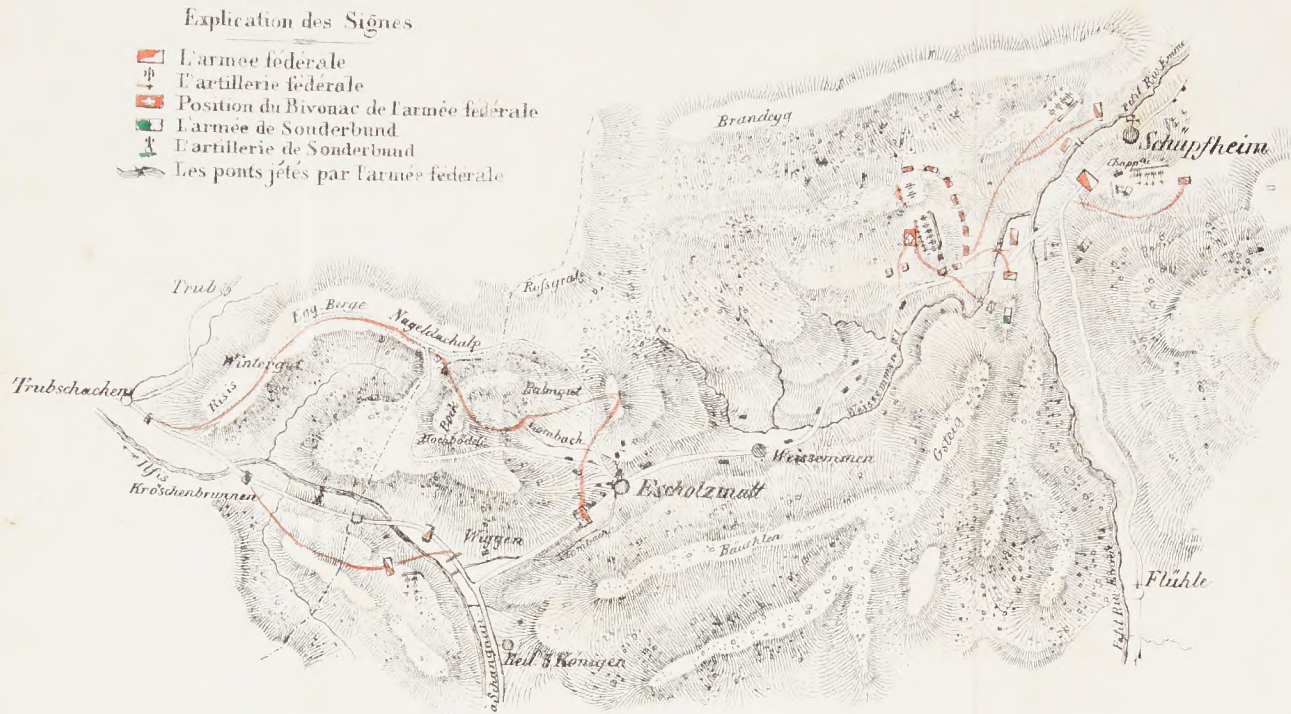 Explication des Signes
L'armée fédérale
L'artillerie fédérale
Position du Bivouac de l'armée fédérale
L'armée de Sonderbund
L'artillerie de Sonderbund
Les ponts jétés par l'armée fédérale
Brandegg
Petit Riv. Emme
Schüpfheim
Chappel
Trub
Rossgrat
Eng-Berge
Nageldachalp
Wintergut
Risis
Trubschachen
Bock
Hochbödeli
Weissemma Fl.
Gsteig
Ilfis
Kröschenbrunnen
Weissemmen
Escholzmatt
Wiggen
Bäuchlen
Flühle
Petit Riv. Emme
Heil. 3 Königen
à Schangnau